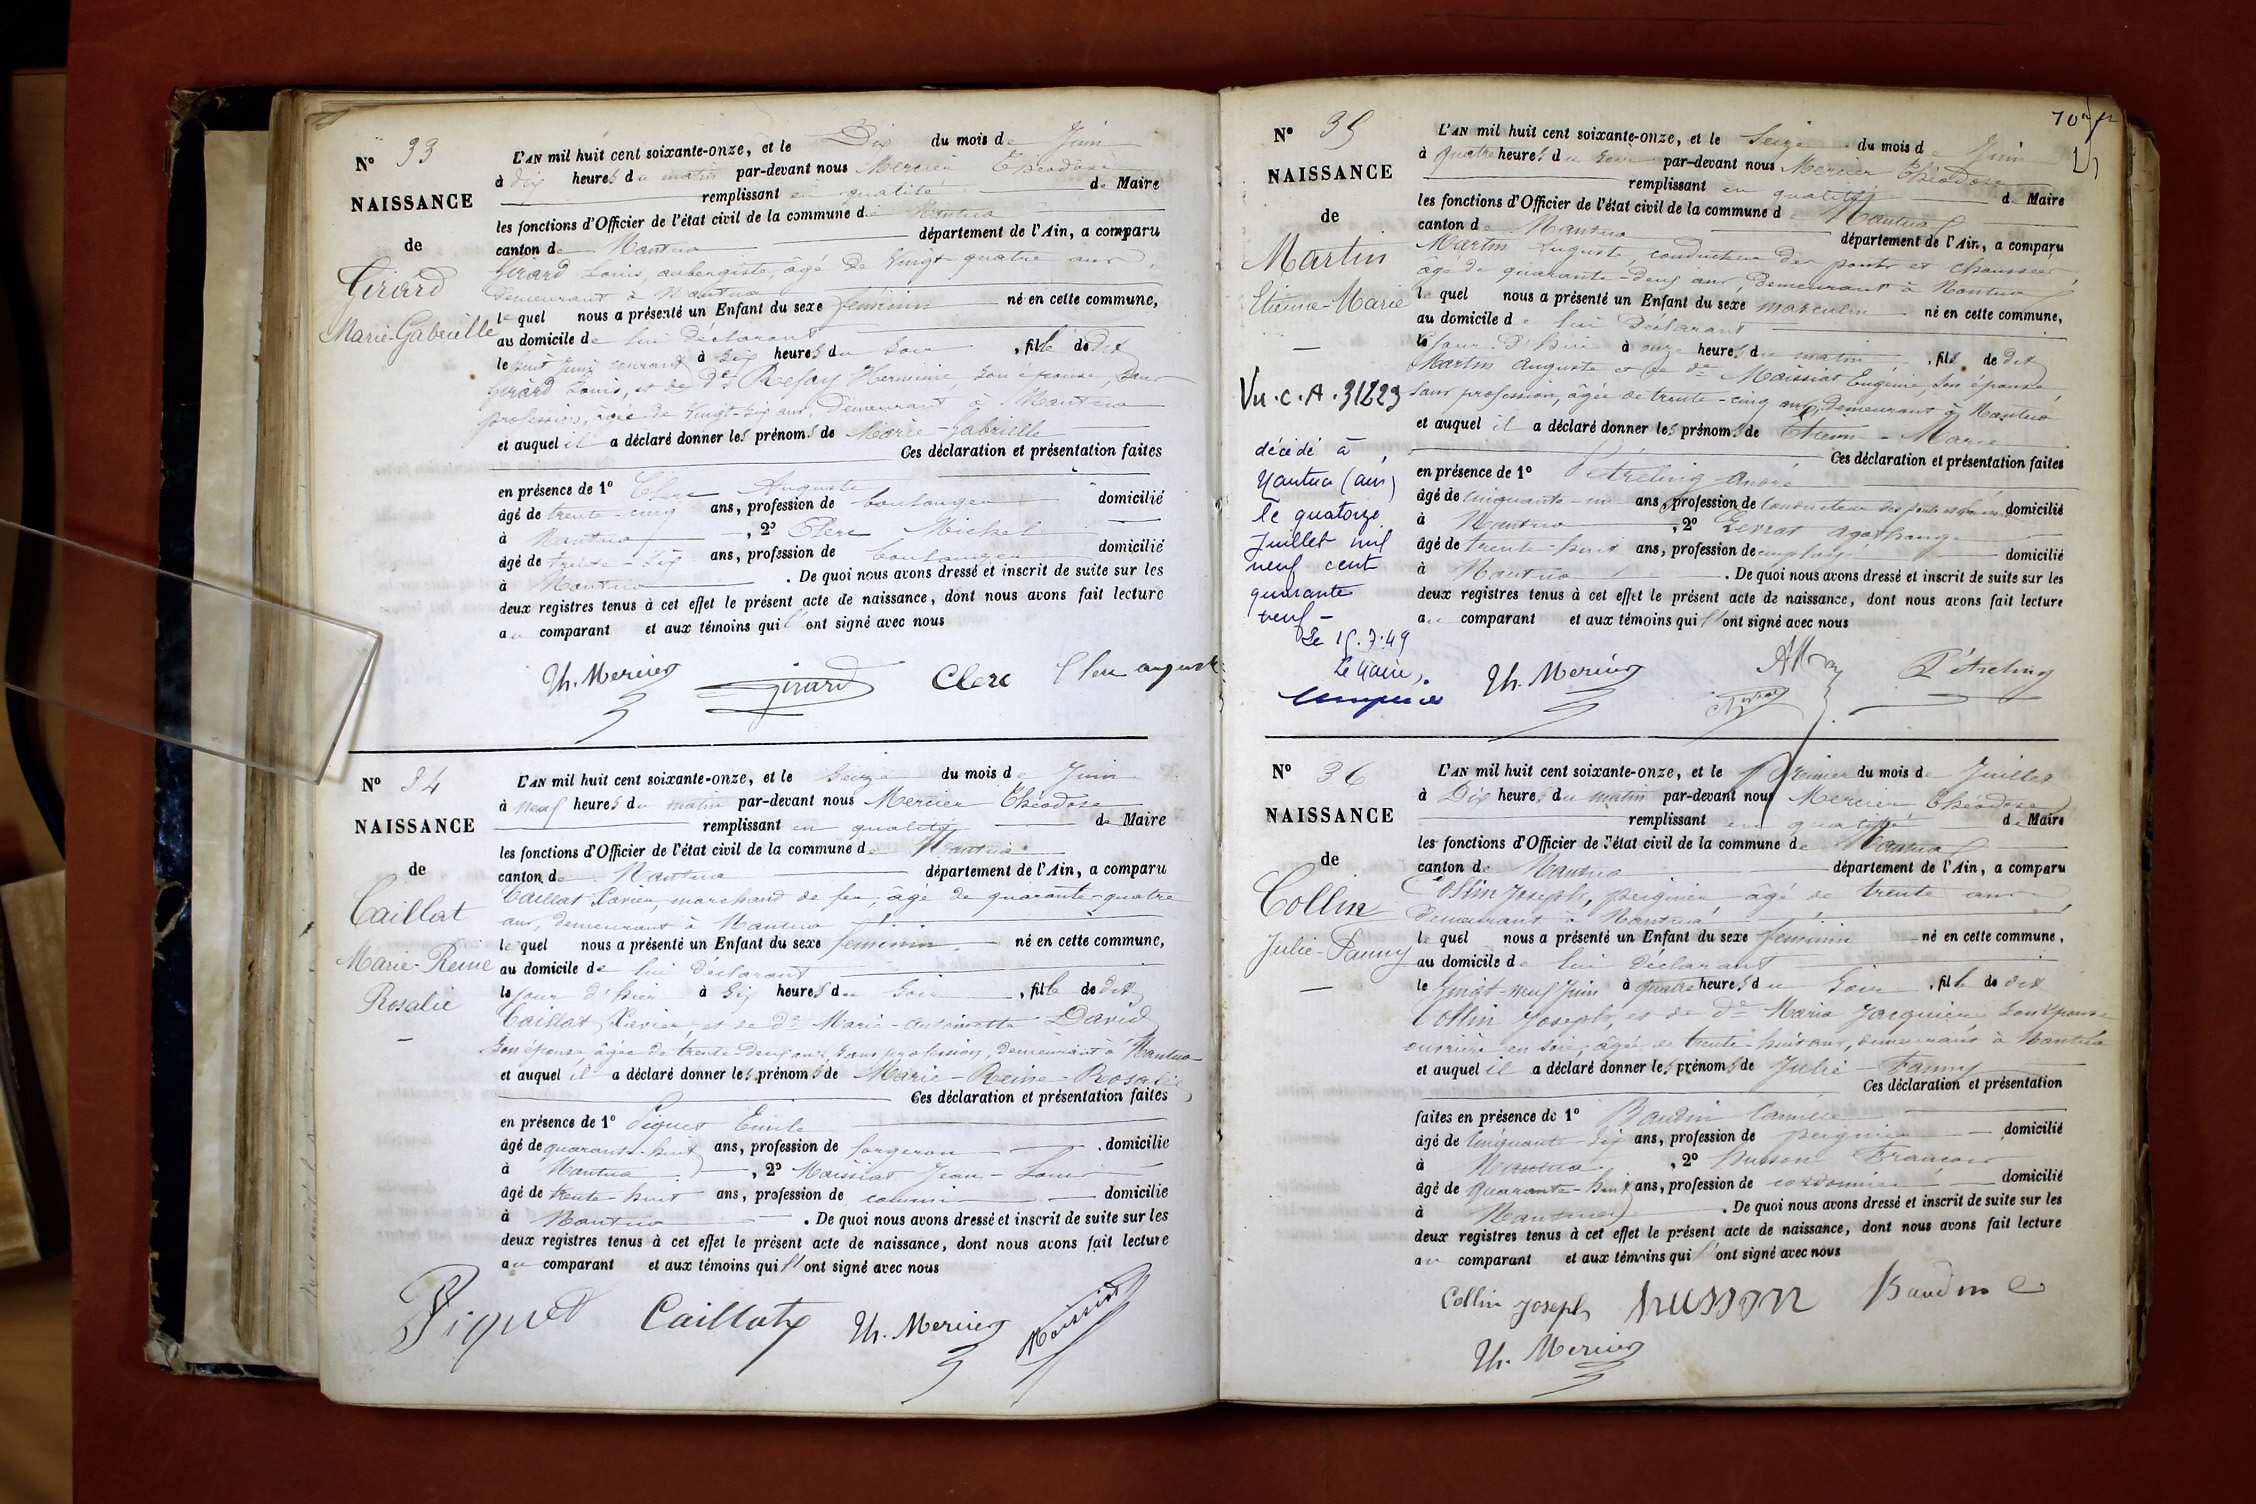 N° 33
NAISSANCE
de
Girard
Marie-Gabrielle
L'AN mil huit cent soixante-onze, et le Dix du mois de Juin
à dix heures du matin par-devant nous Mercier Théodose
remplissant en qualité de Maire
les fonctions d'Officier de l'état civil de la commune de Nantua
canton de Nantua département de l'Ain, a comparu
Girard Louis, aubergiste, âgé de vingt-quatre ans,
demeurant à Nantua
lequel nous a présenté un Enfant du sexe féminin né en cette commune,
au domicile de lui déclarant
le huit Juin courant à six heures du soir, fille de dit
Girard Louis, et de De Hermine, son épouse, sans
profession, âgée de vingt-six ans, demeurant à Nantua
et auquel il a déclaré donner les prénoms de Marie-Gabrielle
Ces déclaration et présentation faites
en présence de 1° Clerc Auguste
âgé de trente-cinq ans, profession de boulanger domicilié
à Nantua, 2° Clerc Michel
âgé de trente-six ans, profession de boulanger domicilié
à Nantua. De quoi nous avons dressé et inscrit de suite sur les
deux registres tenus à cet effet le présent acte de naissance, dont nous avons fait lecture
au comparant et aux témoins qui ont signé avec nous
Th. Mercier Girard Clerc Clerc auguste
N° 34
NAISSANCE
de
Caillat
Marie-Reine
Rosalie
L'AN mil huit cent soixante-onze, et le Seize du mois de Juin
à neuf heures du matin par-devant nous Mercier Théodose
remplissant en qualité de Maire
les fonctions d'Officier de l'état civil de la commune de Nantua
canton de Nantua département de l'Ain, a comparu
Caillat Xavier, marchand de fer, âgé de quarante-quatre
ans, demeurant à Nantua
lequel nous a présenté un Enfant du sexe féminin né en cette commune,
au domicile de lui déclarant
le jour d'hier à six heures du soir, fille de dit
Caillat Xavier, et de De Marie-Antoinette David
son épouse, âgée de trente-deux ans, sans profession, demeurant à Nantua
et auquel il a déclaré donner les prénoms de Marie-Reine-Rosalie
Ces déclaration et présentation faites
en présence de 1° Piquet Emile
âgé de quarante-huit ans, profession de forgeron domicilié
à Nantua, 2° Maissiat Jean-Louis
âgé de trente-huit ans, profession de commis domicilié
à Nantua. De quoi nous avons dressé et inscrit de suite sur les
deux registres tenus à cet effet le présent acte de naissance, dont nous avons fait lecture
au comparant et aux témoins qui ont signé avec nous
Piquet Caillat Th. Mercier Maissiat
N° 35
NAISSANCE
de
Martin
Etienne-Marie
Vu.C.A.31223
décédé à
Nantua (ain)
le quatorze
Juillet mil
neuf cent
quarante
neuf -
Le 15.7.49
Le Maire,
L'AN mil huit cent soixante-onze, et le Seize du mois de Juin
à quatre heures du soir par-devant nous Mercier Théodose
remplissant en qualité de Maire
les fonctions d'Officier de l'état civil de la commune de Nantua
canton de Nantua département de l'Ain, a comparu
Martin Auguste, conducteur des ponts et chaussées,
âgé de quarante-deux ans, demeurant à Nantua
lequel nous a présenté un Enfant du sexe masculin né en cette commune,
au domicile de lui déclarant
le jour d'hier à onze heures du matin, fils de dit
Martin Auguste et de de Maissiat Eugénie, son épouse,
sans profession, âgée de trente-cinq ans, demeurant à Nantua
et auquel il a déclaré donner les prénoms de Etienne-Marie
Ces déclaration et présentation faites
en présence de 1° Pétreling André
âgé de cinquante ans, profession de conducteur des ponts et chaussées domicilié
à Nantua, 2°
âgé de trente-huit ans, profession de employé domicilié
à Nantua. De quoi nous avons dressé et inscrit de suite sur les
deux registres tenus à cet effet le présent acte de naissance, dont nous avons fait lecture
au comparant et aux témoins qui ont signé avec nous
Th. Mercier Pétreling
N° 36
NAISSANCE
de
Collin
Julie-Fanny
L'AN mil huit cent soixante-onze, et le Premier du mois de Juillet
à Dix heures du matin par-devant nous Mercier Théodose
remplissant en qualité de Maire
les fonctions d'Officier de l'état civil de la commune de Nantua
canton de Nantua département de l'Ain, a comparu
Collin Joseph, peignier âgé de trente ans
demeurant à Nantua
lequel nous a présenté un Enfant du sexe féminin né en cette commune,
au domicile de lui déclarant
le vingt-neuf Juin à quatre heures du soir, fille de dit
Collin Joseph, et de De Maria Jacquier son épouse
ouvrière en soie, âgée de trente-huit ans, demeurant à Nantua
et auquel il a déclaré donner les prénoms de Julie-Fanny
Ces déclaration et présentation
faites en présence de 1° Baudin Camille
âgé de cinquante-six ans, profession de peignier domicilié
à Nantua, 2° Husson François
âgé de quarante-huit ans, profession de cordonnier domicilié
à Nantua. De quoi nous avons dressé et inscrit de suite sur les
deux registres tenus à cet effet le présent acte de naissance, dont nous avons fait lecture
au comparant et aux témoins qui ont signé avec nous
Collin Joseph husson Baudin C
Th. Mercier